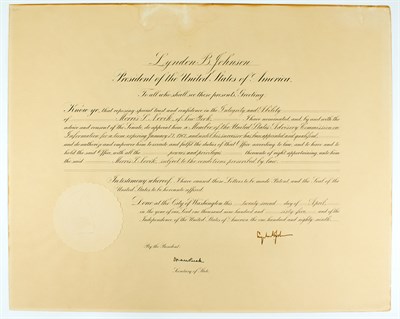 Lyndon B. Johnson
President of the United States of America.
To all who shall see these presents, Greeting:
Know ye, that reposing special trust and confidence in the Integrity and Ability
of Morris S. Novik, of New York, I have nominated, and, by and with the
advice and consent of the Senate, do appoint him a Member of the United States Advisory Commission on
Information for a term expiring January 27, and until his successor has been appointed and qualified,
and do authorize and empower him to execute and fulfil the duties of that Office according to law, and to have and to
hold the said Office, with all the powers and privileges thereunto of right appertaining, unto him
the said Morris S. Novik, subject to the conditions prescribed by law.
In testimony whereof, I have caused these Letters to be made Patent and the Seal of the
United States to be hereunto affixed.
Done at the City of Washington this twenty second day of April
in the year of our Lord one thousand nine hundred and sixty five and of the
Independence of the United States of America the one hundred and eighty ninth.
By the President:
Secretary of State.